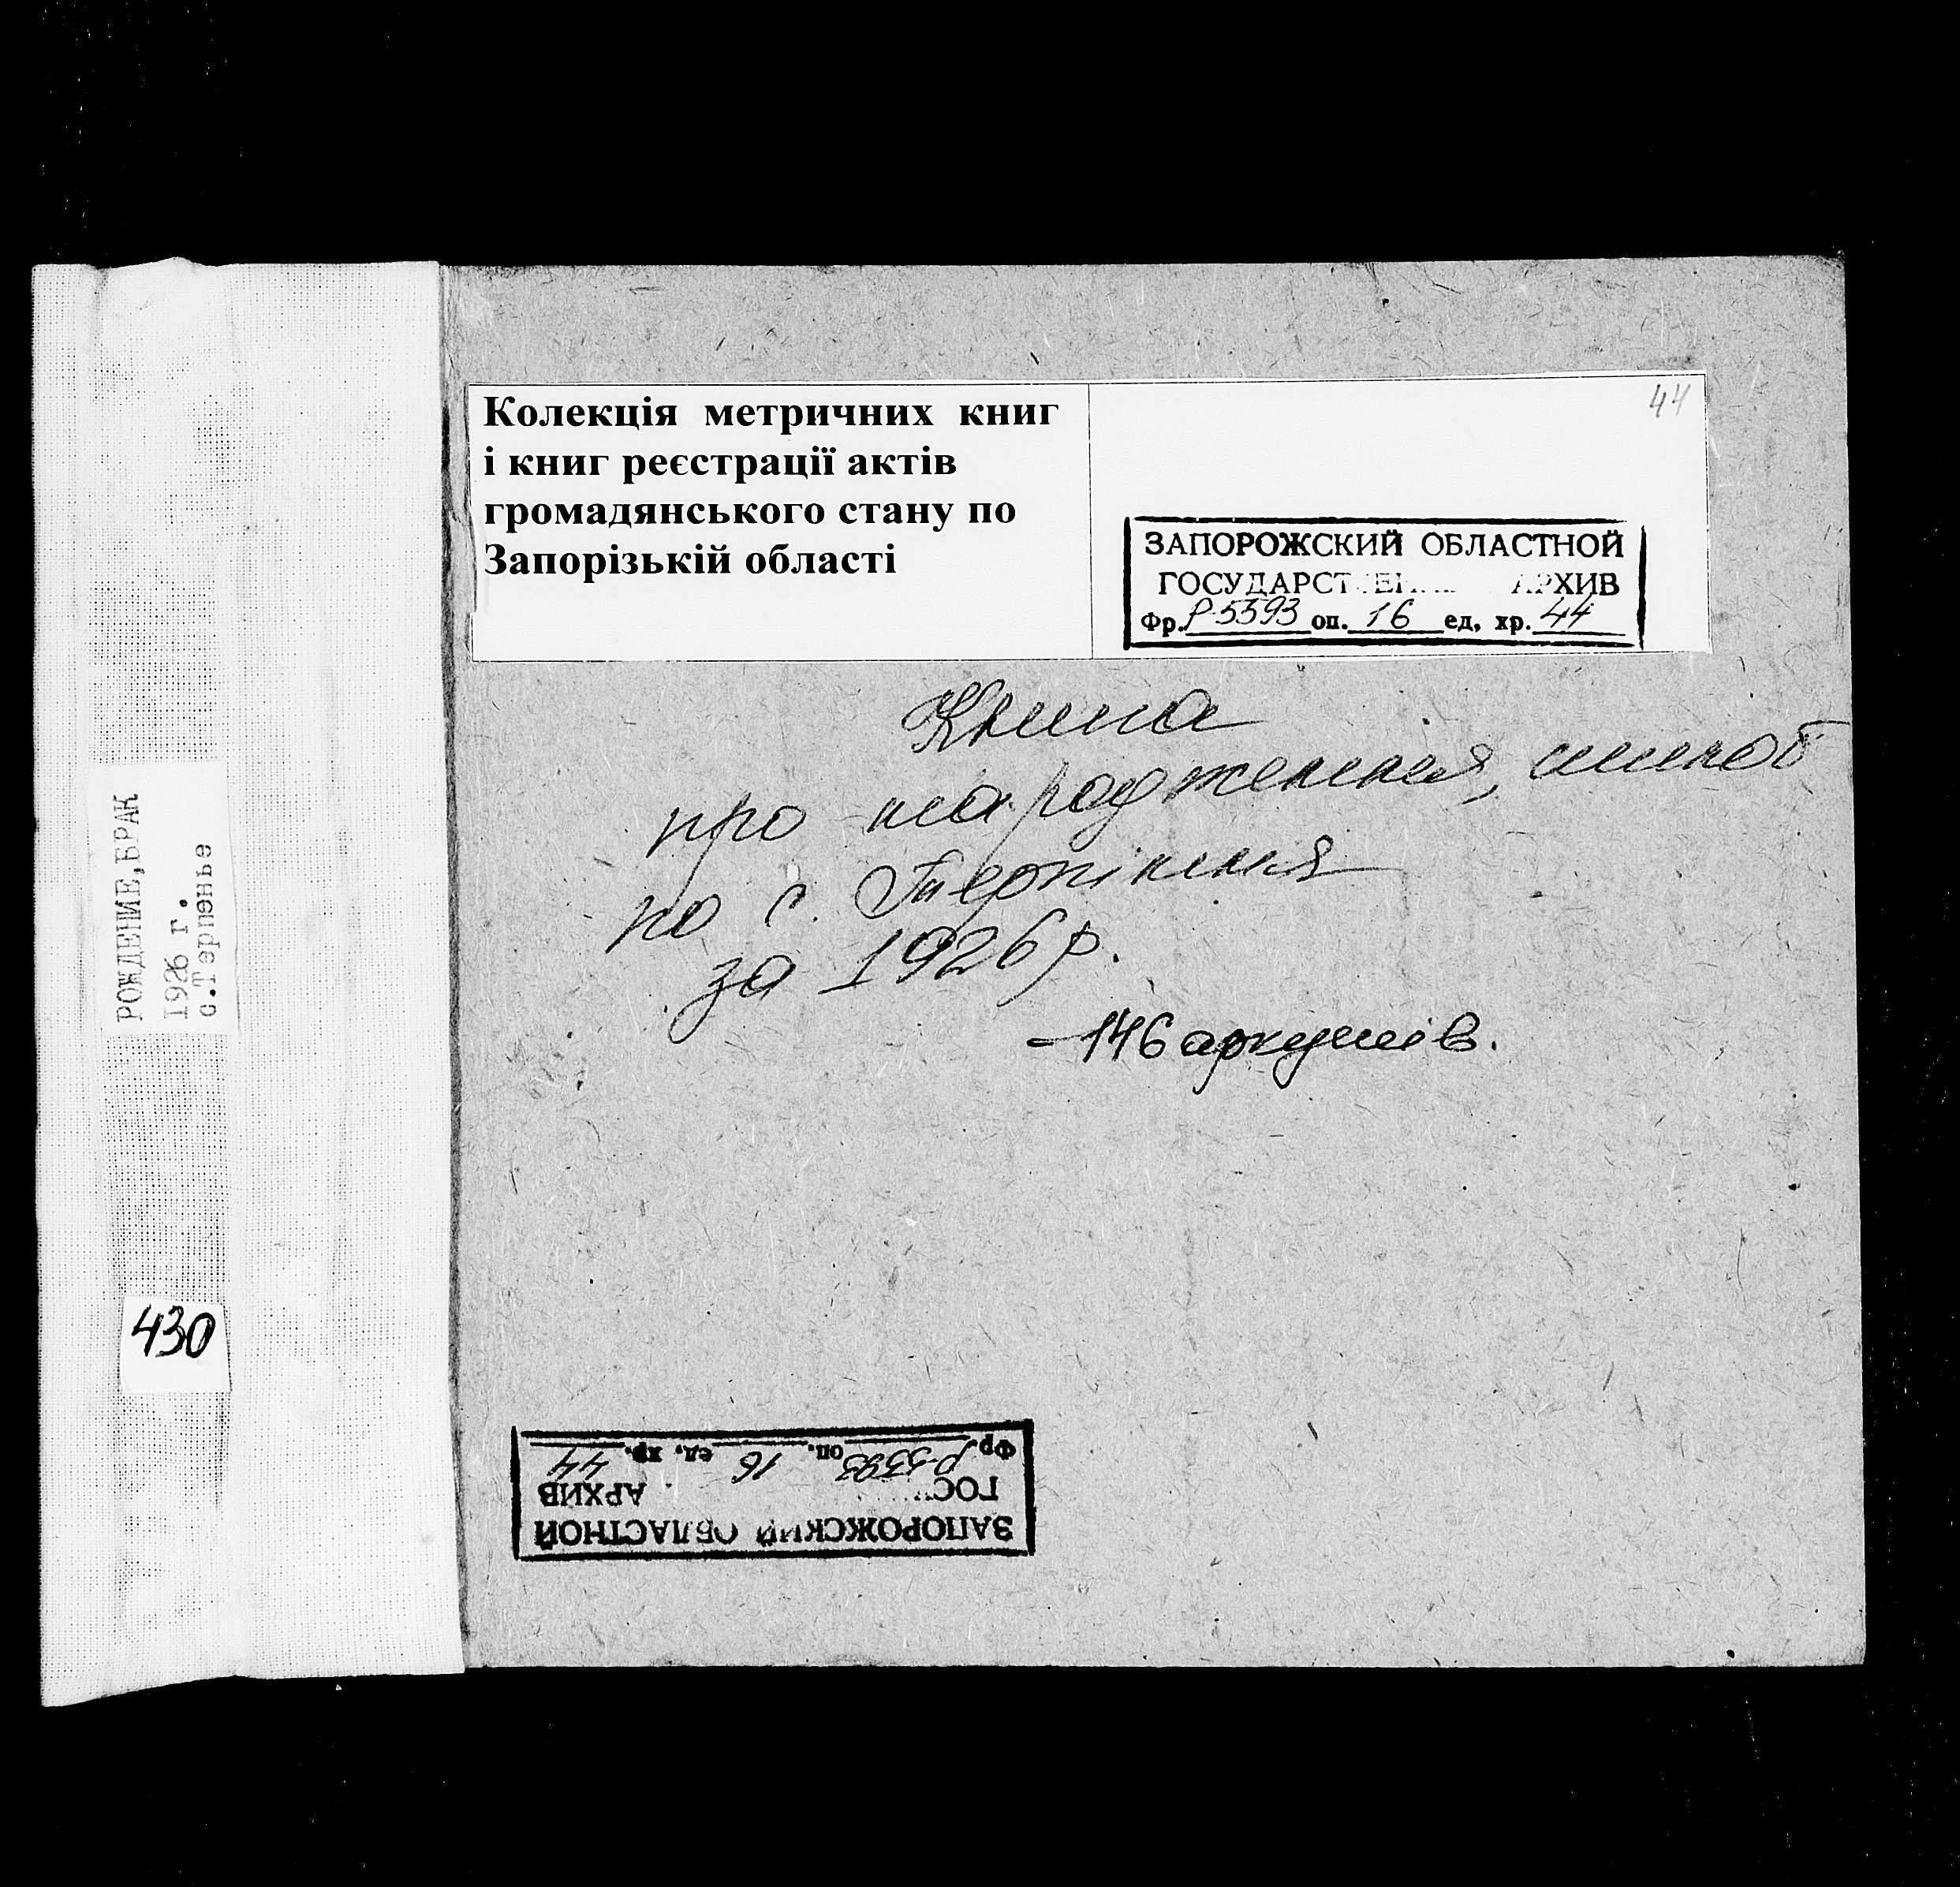 РОЖДЕНИЕ, БРАК
1926 г.
с. Терпенье
430
Колекція метричних книг
і книг реєстрації актів
громадянського стану по
Запорізькій області
44
ЗАПОРОЖСКИЙ ОБЛАСТНОЙ
ГОСУДАРСТВЕНН АРХИВ
Фр. Р-5593 оп. 16 ед. хр. 44
Книга
про народження, шлюб
по с. Терпіння
за 1926 р.
– 146 аркушів.
ЗАПОРОЖСКИЙ ОБЛАСТНОЙ
ГОС АРХИВ
Фр. Р-5593 оп. 16 ед. хр. 44